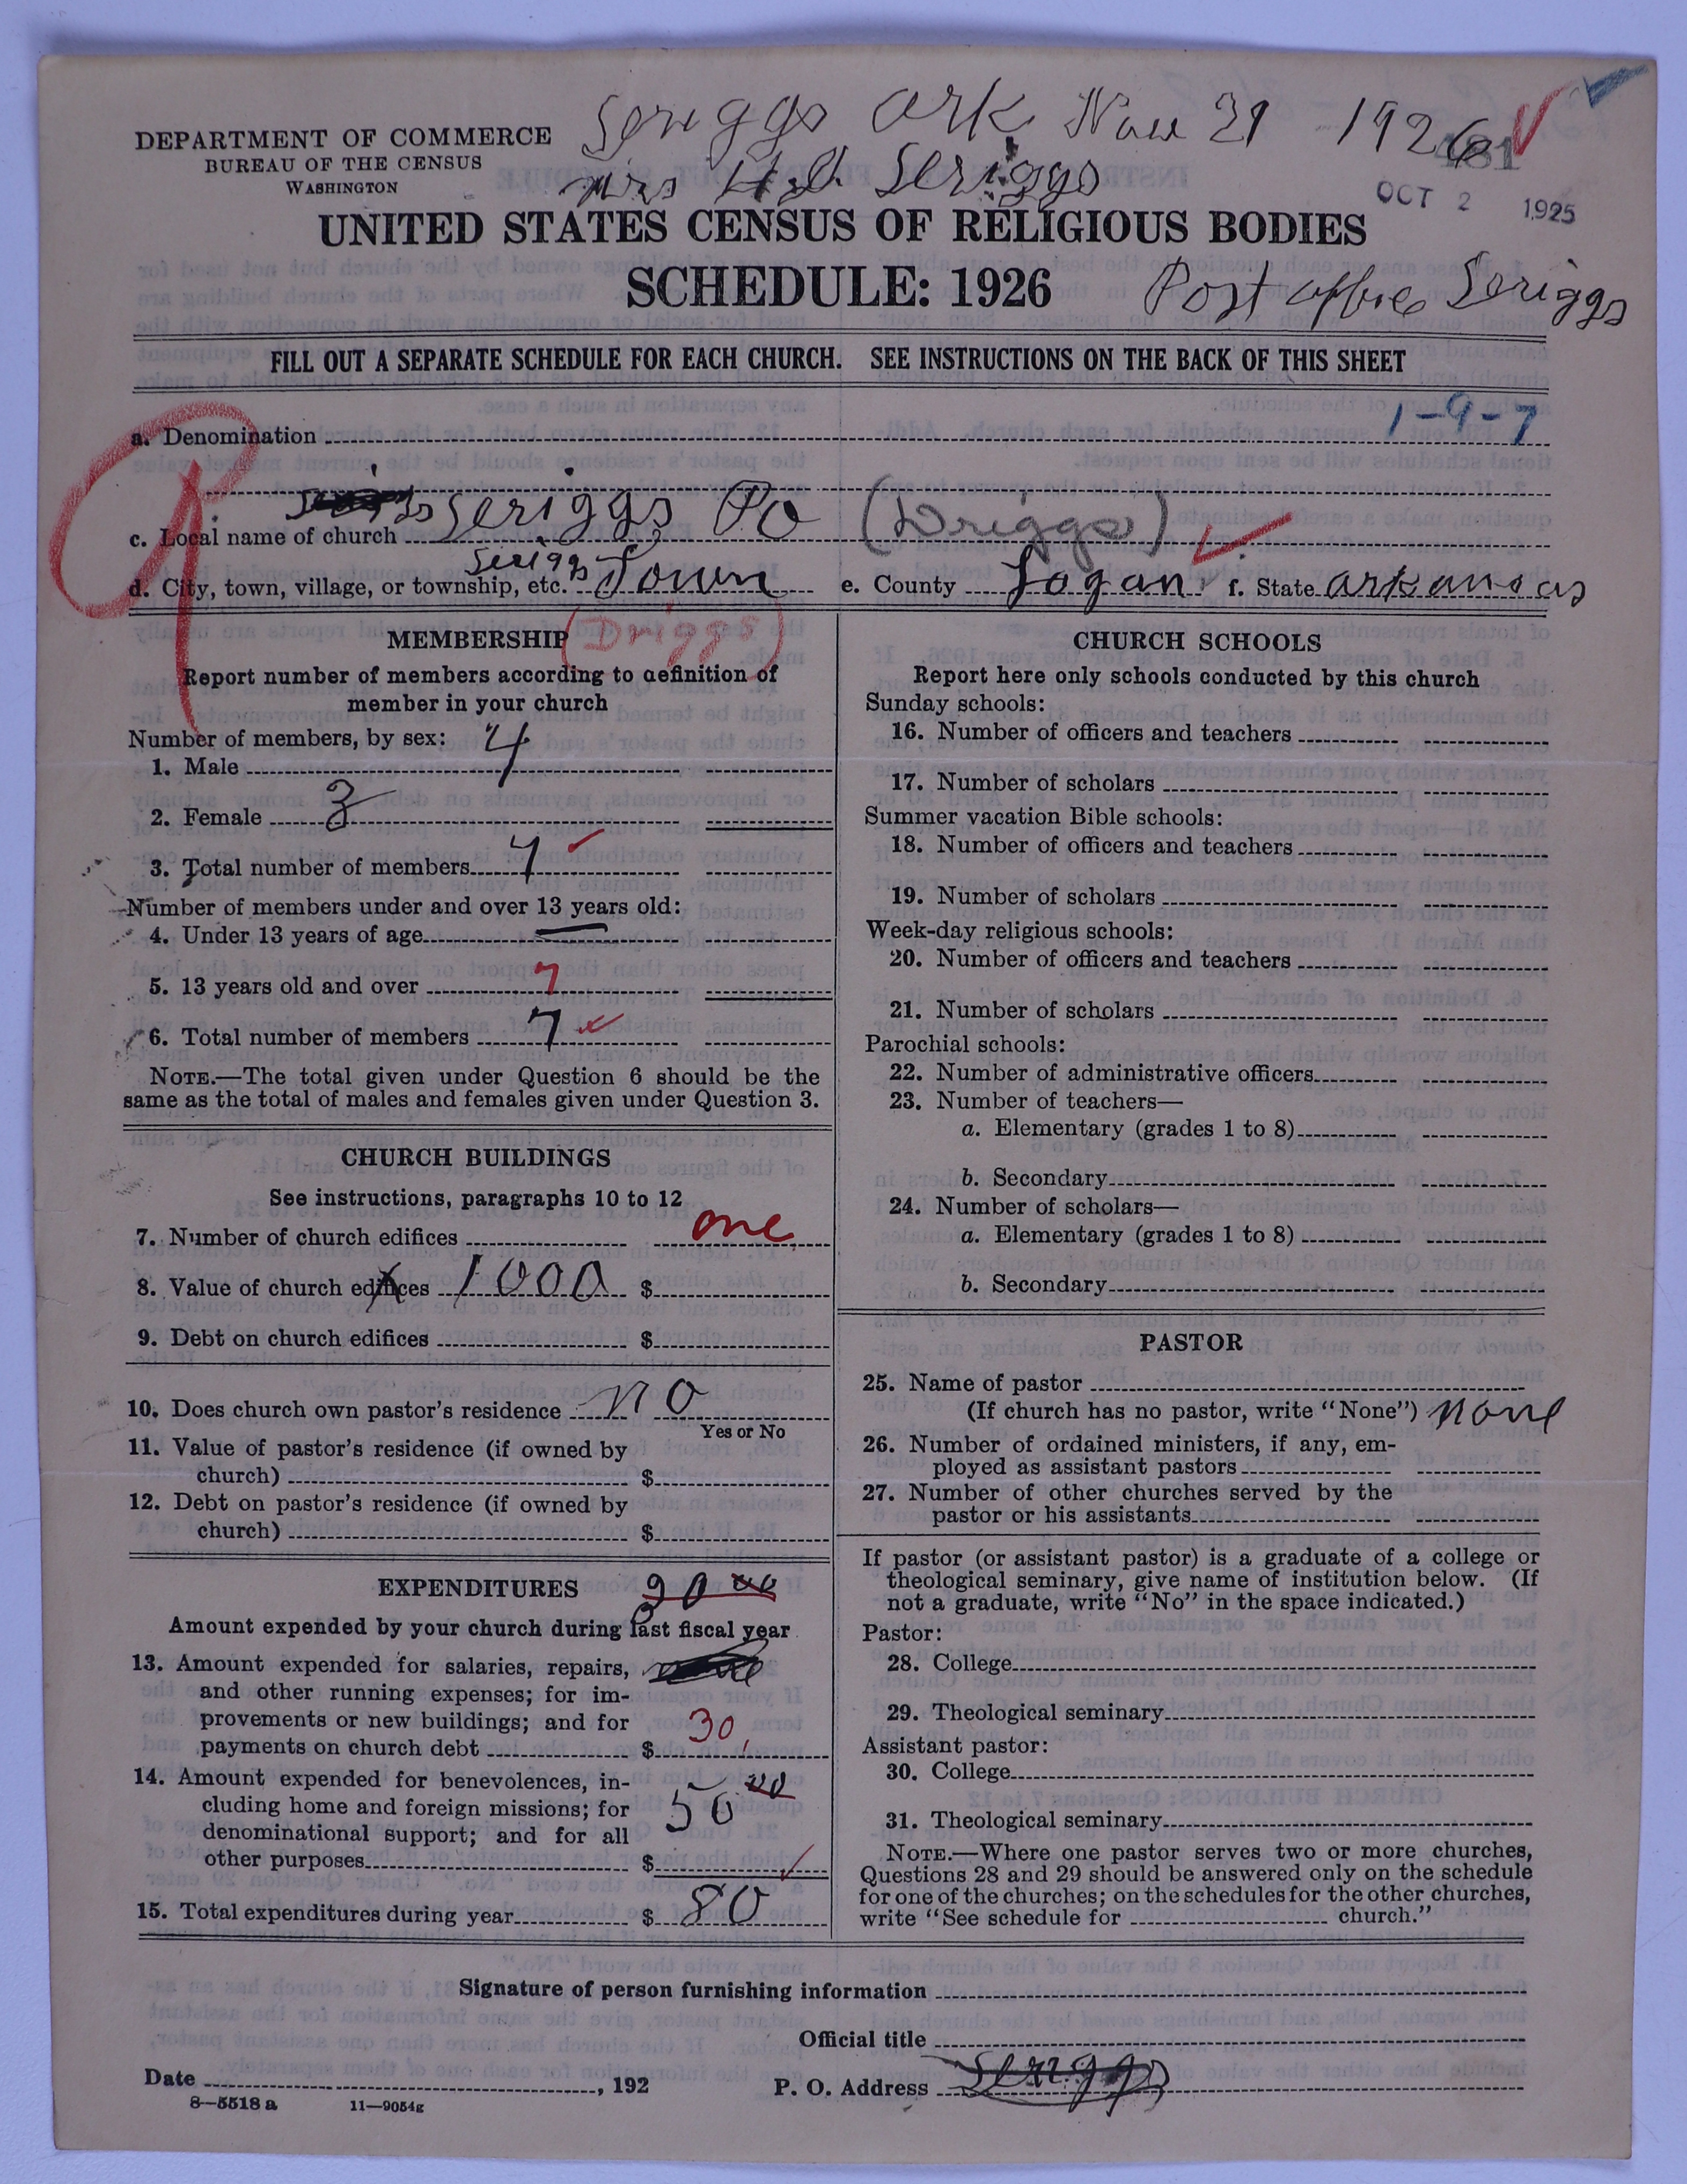 Seriggs Ark Nov 29 1926
DEPARTMENT OF COMMERCE
BUREAU OF THE CENSUS
WASHINGTON
481
Mrs H.D. Seriggs
OCT 2 1925
UNITED STATES CENSUS OF RELIGIOUS BODIES
SCHEDULE: 1926
Post office Seriggs
FILL OUT A SEPARATE SCHEDULE FOR EACH CHURCH. SEE INSTRUCTIONS ON THE BACK OF THIS SHEET
a. Denomination 1-9-7
c. Local name of church Seriggs Po (Driggs)
d. City, town, village, or township, etc. Seriggs Town e. County Logan f. State Arkansas
MEMBERSHIP (Driggs)
Report number of members according to definition of
member in your church
Number of members, by sex:
1. Male 4
2. Female 3
3. Total number of members 7
Number of members under and over 13 years old:
4. Under 13 years of age —
5. 13 years old and over 7
6. Total number of members 7
NOTE.—The total given under Question 6 should be the
same as the total of males and females given under Question 3.
CHURCH BUILDINGS
See instructions, paragraphs 10 to 12
7. Number of church edifices one
8. Value of church edifices 1000 $
9. Debt on church edifices $
10. Does church own pastor's residence no
Yes or No
11. Value of pastor's residence (if owned by
church) $
12. Debt on pastor's residence (if owned by
church) $
EXPENDITURES
Amount expended by your church during last fiscal year
13. Amount expended for salaries, repairs,
and other running expenses; for im-
provements or new buildings; and for
payments on church debt $ 30
14. Amount expended for benevolences, in-
cluding home and foreign missions; for
denominational support; and for all
other purposes $ 50 00
15. Total expenditures during year $ 80
CHURCH SCHOOLS
Report here only schools conducted by this church
Sunday schools:
16. Number of officers and teachers
17. Number of scholars
Summer vacation Bible schools:
18. Number of officers and teachers
19. Number of scholars
Week-day religious schools:
20. Number of officers and teachers
21. Number of scholars
Parochial schools:
22. Number of administrative officers
23. Number of teachers—
a. Elementary (grades 1 to 8)
b. Secondary
24. Number of scholars—
a. Elementary (grades 1 to 8)
b. Secondary
PASTOR
25. Name of pastor
(If church has no pastor, write "None") none
26. Number of ordained ministers, if any, em-
ployed as assistant pastors
27. Number of other churches served by the
pastor or his assistants
If pastor (or assistant pastor) is a graduate of a college or
theological seminary, give name of institution below. (If
not a graduate, write "No" in the space indicated.)
Pastor:
28. College
29. Theological seminary
Assistant pastor:
30. College
31. Theological seminary
NOTE.—Where one pastor serves two or more churches,
Questions 28 and 29 should be answered only on the schedule
for one of the churches; on the schedules for the other churches,
write "See schedule for church."
Signature of person furnishing information
Official title
Date , 192 P. O. Address Seriggs
8—5518 a 11—9054g